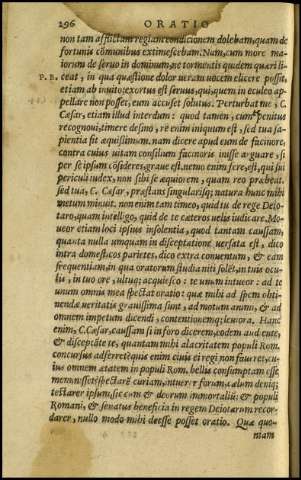 296 ORATIO
non tam afflictam regiam condicionem dolebam, quam de
fortunis cõmunibus extimescebam. Nam, cum more ma-
iorum de seruo in dominum, ne tormentis quidem quæri li-
P. R. ceat, in qua quæstione dolor ueram uocem elicere possit,
etiam ab inuito: exortus est seruus, qui, quem in eculeo ap-
pellare non posset, eum accuset solutus. Perturbat me, C.
Cæsar, etiam illud interdum: quod tamen, cum te penitus
recognoui, timere desino, re enim iniquum est, sed tua sa-
pientia fit æquissimum. nam dicere apud eum de facinore,
contra cuius uitam consilium facinoris inisse arguare, si
per se ipsum cõsideres, graue est. nemo enim fere, est, qui sui
periculi iudex, non sibi se æquiorem, quam reo præbeat.
sed tua, C. Cæsar, præstans singularisq; natura hunc mihi
metum minuit. non enim tam timeo, quid tu de rege Deio-
taro, quam intelligo, quid de te cæteros uelis iudicare. Mo-
ueor etiam loci ipsius insolentia, quod tantam caussam,
quanta nulla umquam in disceptatione uersata est, dico
intra domesticos parietes, dico extra conuentum, & eam
frequentiam, in qua oratorum studia niti solet, in tuis ocu-
lis, in tuo ore, ultuq; acquiesco: te unum intueor: ad te
unum omnis mea spectat oratio: quæ mihi ad spem obti-
nendæ ueritatis grauissima sunt, ad motum animi, & ad
omnem impetum dicendi, contentionemq; leuiora. Hanc
enim, C. Cæsar, caussam si in foro dicerem, eodem audiente,
& disceptãte te, quantam mihi alacritatem populi Rom.
concursus adferret? quis enim ciuis ei regi non faueret, cu-
ius omnem ætatem in populi Rom. bellis consumptam esse
meminisset? spectarẽ curiam, intuerer forum, cælum deniq;
testarer ipsum, sic cum & deorum immortaliũ, & populi
Romani, & senatus beneficia in regem Deiotarum recor-
darer, nullo modo mihi deesse posset oratio. Quæ quo-
niam